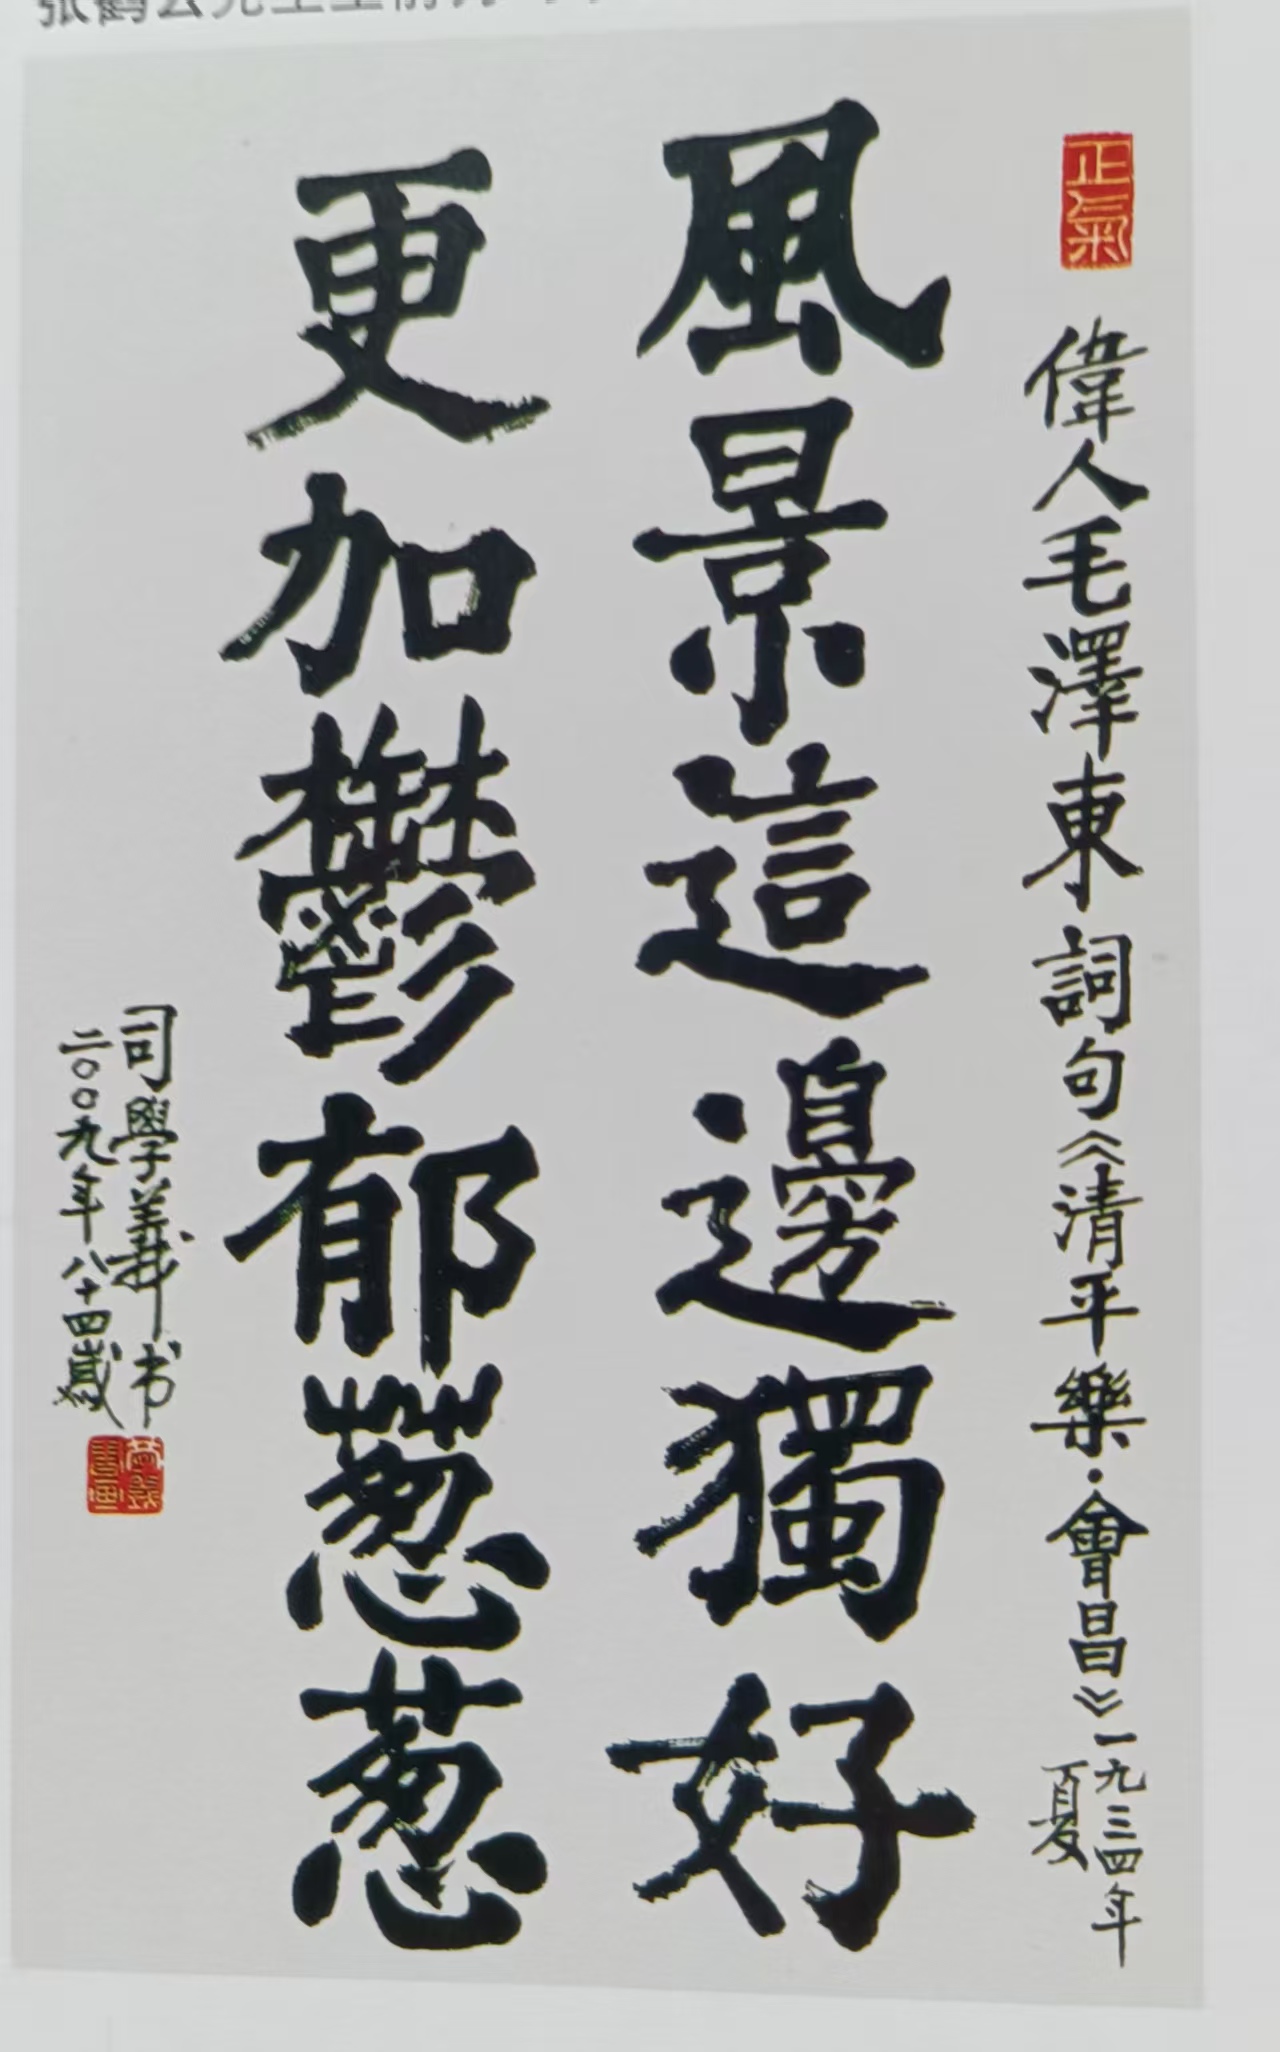 正氣
偉人毛澤東詞句《清平樂·會昌》一九三四年
夏
風景這邊獨好
更加鬱郁葱葱
司學義书
二〇〇九年八十四歲